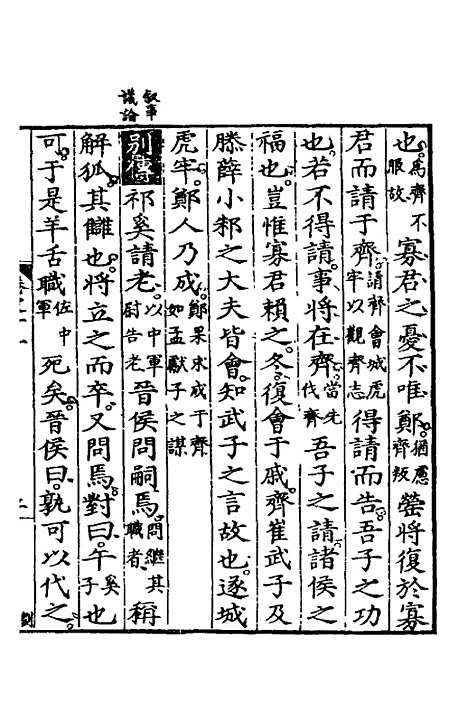 叙事
議論
也為齊不服故寡君之憂不唯鄭猶慮齊叛罃將復於寡
君而請于齊請齊會城虎牢以觀齊志得請而告吾子之功
也若不得請事將在齊當先伐齊吾子之請諸侯之
福也豈惟寡君賴之冬復會于戚齊崔武子及
滕薛小邾之大夫皆會知武子之言故也遂城
虎牢鄭人乃成鄭果求成于齊如孟獻子之謀
別傳祁奚請老以中軍尉告老晉侯問嗣焉問繼其職者稱
解狐其讎也將立之而卒又問焉對曰午奚子也
可于是羊舌職佐中軍死矣晉侯曰孰可以代之